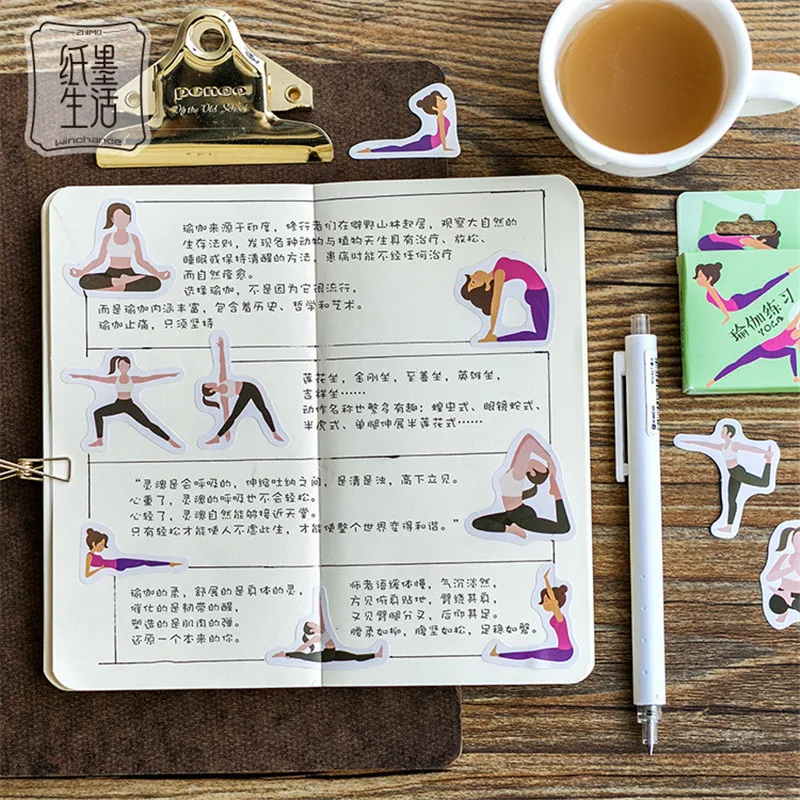 ZHIMO
纸墨
生活
winchance
penco
Up the Old School
瑜伽来源于印度，修行者们在僻野山林起居，观察大自然的
生存法则，发现各种动物与植物天生具有治疗、放松、
睡眠或保持清醒的方法，患病时能不经任何治疗
而自然痊愈。
选择瑜伽，不是因为它很流行，
而是瑜伽内涵丰富，包含着历史、哲学和艺术。
瑜伽止痛，只须坚持
莲花坐，金刚坐，至善坐，英雄坐，
吉祥坐……
动作名称也繁多有趣：蝗虫式、眼镜蛇式、
半虎式、单腿伸展半莲花式……
“灵魂是会呼吸的，伸缩吐纳之间，是清是浊，高下立见。
心重了，灵魂的呼吸也不会轻松。
心轻了，灵魂自然能够接近天堂。
只有轻松才能使人不虚此生，才能使整个世界变得和谐。”
瑜伽的柔，舒展的是身体的灵，
催化的是韧带的醒，
塑造的是肌肉的弹。
还原一个本来的你。
师者语缓体慢，气沉淡然，
方见俯身贴地，臂绕其身
又见臂腿分叉，后仰其足。
腰柔如柳，腹坚如松，足稳如磐。
瑜伽练习
YOGA